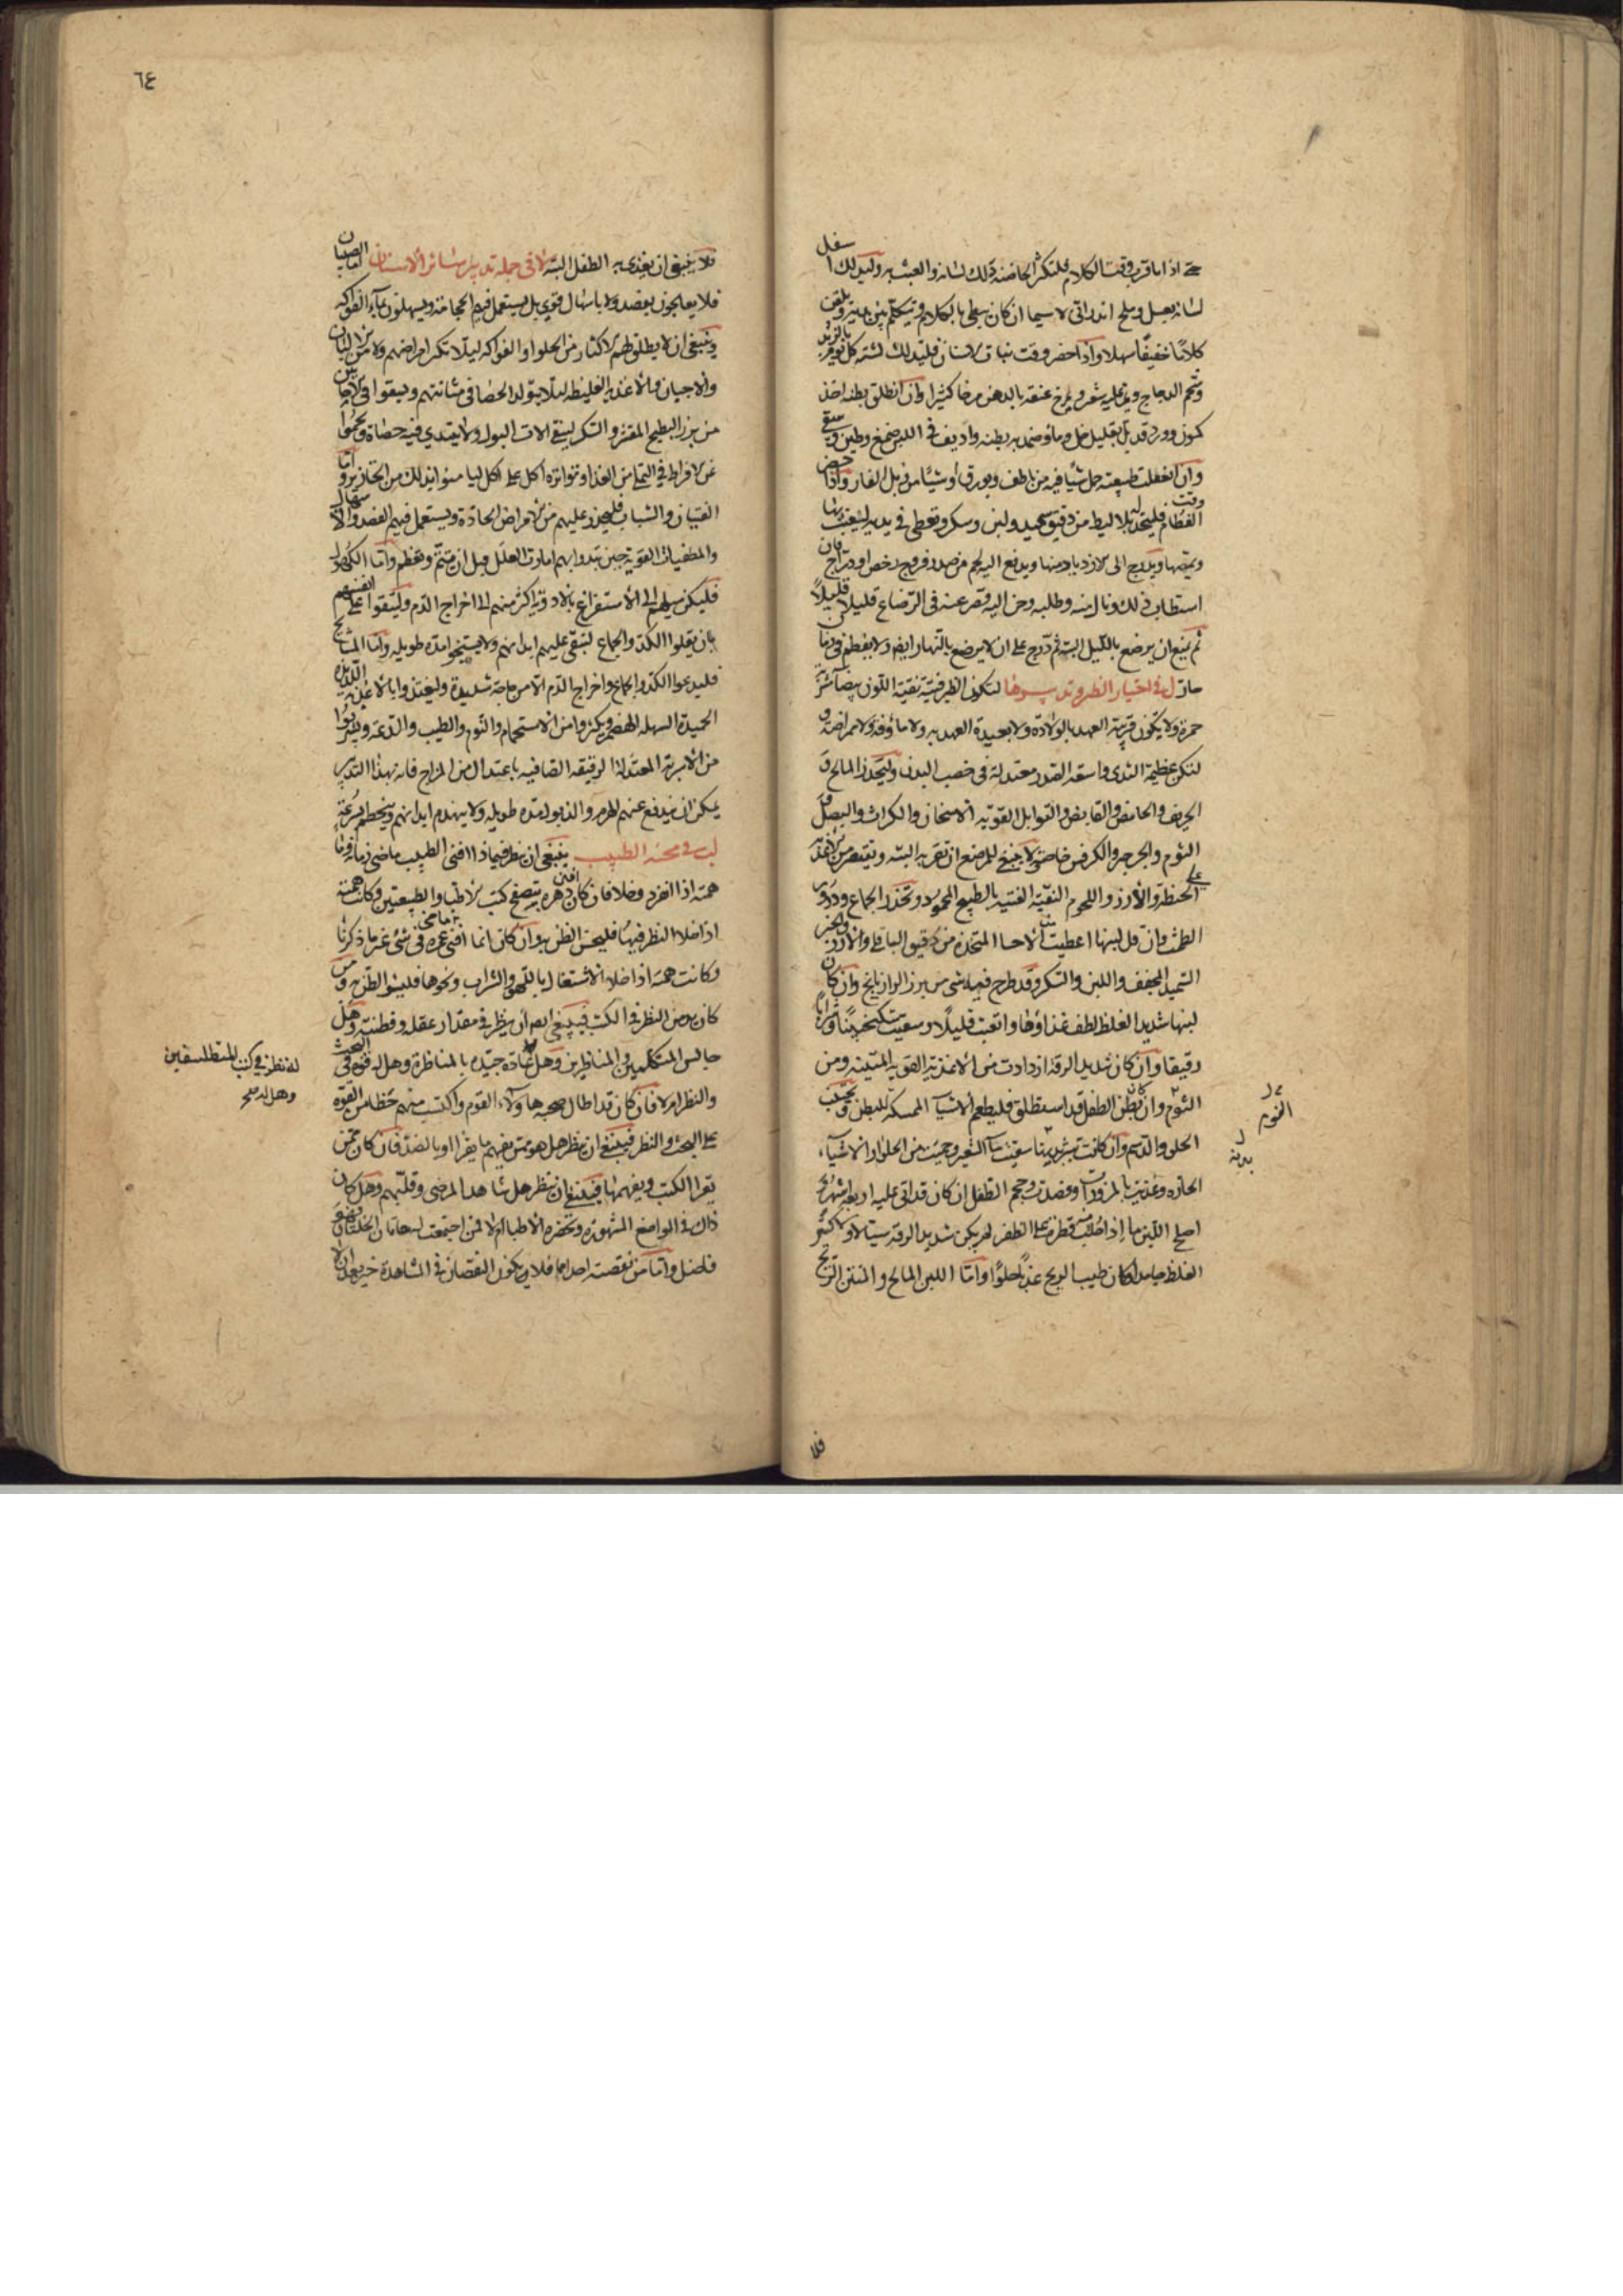 حتى اذا ما قرب وقت الكلام فلتكثر الحاضنة دلك لسانه والعبث به وليدلك اسفل
لسانه بعسل وملح اندرانى لا سيما ان كان بطى بالكلام ويتكلم بين يديه ويلقن
كلامًا خفيفًا سهلا واذا حضر وقت نبات الاسنان فليدلك لثته كل يوم بالزبد
وشحم الدجاج ويمر عليه شعر ويمرخ عنقه بالدهن مرخا كثيرا وان انطلق بطنه اخذ
كمون وورد قد بل بقليل خل وماء وضمد به بطنه واديف فى اللبن صمغ وطين وسقى
وان انعقلت طبيعته حمل شيًا فيه من ناطف وبورق او شيًا من زبل الفار واذا حضر
وقت الفطام فليتخذ له بلاليط من دقيق سميد ولبن وسكر وتعطى فى يديه ليعبث بها
ويمصها ويدرج الى الازدياد منها ويدفع اليه لحم من صدر فروج رخص او دراج فان
استطاب ذلك ونال منه وطلبه وحن اليه قصر عنه فى الرضاع قليلا قليلاً
ثم يمنع ان يرضع بالليل البتة ثم درج على ان لا يرضع بالنهار ايضا ولا يفطم فى زمان
حار ل فى اختيار الظر وتدبيرها لتكون الظر فتية نقية اللون بيضآ مشربة
حمرة ولا تكون قريبة العهد بالولادة ولا بعيدة العهد به ولا مأوفة ولا ممراضة و
لتكن عظيمة الثدى واسعة الصدر معتدلة فى خصب البدن وليتحذر المالح و
الحريف والحامض والقابض والتوابل القوية الاسخان والكراث والبصل و
الثوم والجرجير والكرفس خاصة لا ينبغى للمرضع ان تقربه البتة وتقتصر من الاغذية
على الحنطة والارز واللحوم النقية الفتية بالطبخ المحمود وتحذر الجماع ودرور
الطمث فان قل لبنها اعطيت من الاحسا المتخذة من دقيق الباقلى والارز والخبز
السميد المجفف واللبن والسكر وقد طرح فيه شى من بزر الرازيانج وان كان
لبنها شديد الغلظ لطف غذاؤها واتعبت قليلًا وسقيت سكنجبينًا وشرابًا
رقيقا وان كان شديد الرقة ازدادت من الاغذية القوية المتينة ومن
النوم وان كان بطن الطفل قد استطلق فليطعم الاشيآ الممسكة للبطن وتجتنب
الحلو والدسم وان كانت شريها سقيت مآ الشعير وحميت من الحلواء والاشيآء
الحارة وغذيت بالمزورات وفصدت وحجم الطفل ان كان قد اتى عليه اربعة اشهر و
اصلح اللبن ما اذا حلب قطرة على الظفر لم يكن شديد الرقة سيالا ولا كثير
الغلظ جامدا وكان طيب الريح عذبًا حلوًا واما اللبن المالح والمنتن الريح
النوم
بدنه
فلا
٦٤
فلا ينبغى ان يغذى به الطفل البتة لا فى جملة تدبير سائر الاسنان اما الصبيان
فلا يعالجون بفصد ولا باسهال قوى بل يستعمل فيهم الحجامة ويسهلون بمآء الفواكه
وينبغى ان لا يطلق لهم الاكثار من الحلواء والفواكه ليلا تكثر امراضهم ولا من الالبان
والاجبان والاغذية الغليظة ليلا يتولد الحصا فى مثانتهم وليسقوا فى الاحايين
من بزر البطيخ المقشر والسكر لينقى الات البول ولا يبتدى فيه حصاة ويحموا
عن الافراط فى التملى من الغذا وتواتره اكل على اكل ليامنوا بذلك من الخنازير و اما
الفتيان والشباب فليحذر عليهم من الامراض الحادة ويستعمل فيهم الفصد والاسهال
والمطفيات القوية حين تبدوا بهم امارات العلل قبل ان تتم وتعظم واما الكهول
فليكن ميلهم الى الاستفراغ بالادوية اكثر منهم الى اخراج الدم وليتقوا على انفسهم
بان يقلوا الكد والجماع لتبقى عليهم ابدانهم ولا يشيخوا مدة طويلة واما المشايخ
فليدعوا الكد والجماع واخراج الدم الا من حاجة شديدة وليغتذوا بالاغذية اللذيذة
الحميدة السهلة الهضم ويكثروا من الاستحمام والنوم والطيب والدعة ويشربوا
من الاشربة المعتدلة الرقيقة الصافية باعتدال من المزاج فانه بهذا التدبير
يمكن ان يندفع عنهم الهرم والذبول مدة طويلة ولا ينهدم ابدانهم وينحط بسرعة
ل فى محنة الطبيب ينبغى ان ينظر فيماذا افنى الطبيب ماضى زمانه وما
همته اذا انفرد وخلا فان كان افنى دهره بتصفح كتب الاطبا والطبيعيين وكانت همته
اذا خلا النظر فيها فليحسن الظن به وان كان انما افنى عمره فى شى غير ما ذكرنا
وكانت همته اذا خلا الاشتغال باللهو والشراب ونحوها فليسؤ الظن به ومن
كان يدمن النظر فى الكتب فينبغى ايضا ان ينظر فى مقدار عقله وفطنته وهل
جالس المتكلمين والمناظرين وهل له عادة جيدة بالمناظرة وهل له قوة فى البحث
والنظر ام لا فان كان قد اطال صحبة هاولآء القوم واكتسب منهم حظا من القوة
على البحث والنظر فينبغى ان ينظر هل هو ممن يفهم ما يقرا او بالضد فان كان ممن
يقرا الكتب ويفهمها فينبغى ان ينظر هل شاهد المرضى وقلبهم وهل كان
ذلك فى المواضع المشهورة وتحضره الاطبا ام لا فمن اجتمعت له هاتان الخلتان فهو
فاضل واما من نقصته احداهما فلان يكون النقصان فى المشاهدة خير بعد ان لا
له نظر فى كتب المتفلسفين
وهل له صح